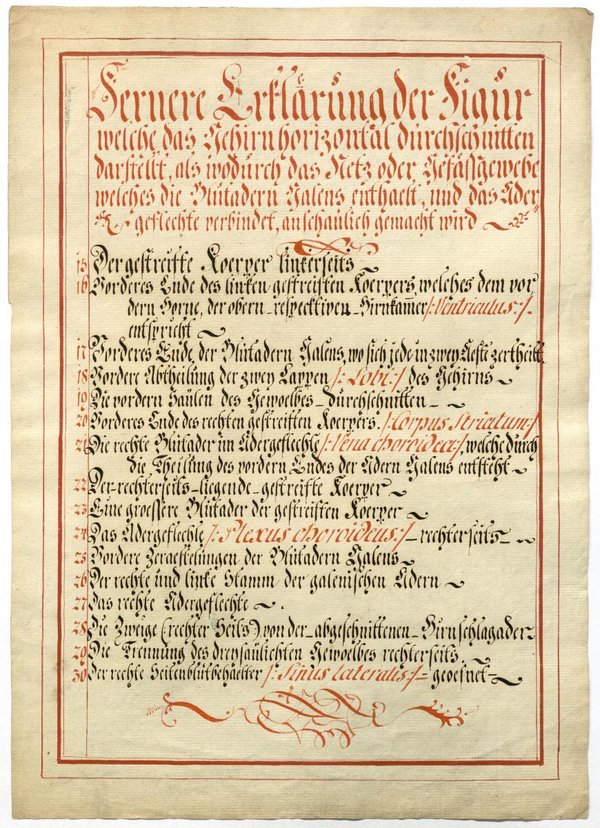 Fernere Erklärung der Figur
welche das Gehirn horizontal durchschnitten
darstellt, als wodurch das Netz oder Gefässgewebe
welches die Blutadern Galens enthaelt, und das Ader-
geflechte verbindet, anschaulich gemacht wird
15 Der gestreifte Koerper linkerseits
16 Vorderes Ende des linken gestreiften Koerpers, welches dem vor
dern Horne, der obern respecktiven Hirnkammer /:Ventriculus:/
entspricht
17 Vorderes Ende, der Blutadern Galens, wo sich jede in zwey Aeste zertheilt
18 Vordere Abtheilung der zwey Lappen /:Lobi:/ des Gehirns
19 Die vordern Säulen des Gewoelbes durchschnitten
20 Vorderes Ende des rechten gestreiften Koerpers. /:Corpus Striatum:/
21 Die rechte Blutader im Adergeflechte /:Vena choroidea:/ welche durch
die Theilung des vordern Endes der Adern Galens entsteht
22 Der rechterseits liegende gestreifte Koerper
23 Eine groessere Blutader der gestreiften Koerper
24 Das Adergeflechte /:Plexus choroideus:/ rechterseits
25 Vordere Zeraestelungen der Blutadern Galens
26 Der rechte und linke Stamm der galenischen Adern
27 Das rechte Adergeflechte
28 Die Zweige (rechter Seits) von der abgeschnittenen Hirnschlagader
29 Die Trennung des dreysäulichten Gewoelbes rechterseits.
30 Der rechte Seitenblutbehaelter /:Sinus lateralis:/ geoefnet